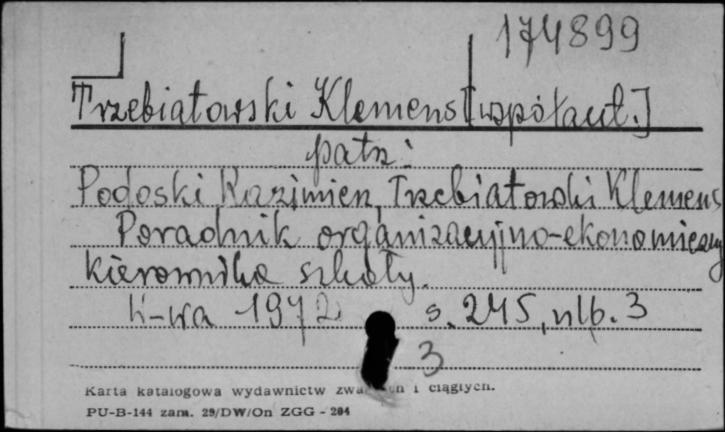 174899
Trzebiatowski Klemens [współaut.]
patrz:
Podoski Kazimierz, Trzebiatowski Klemens
Poradnik organizacyjno-ekonomiczny
kierownika szkoły.
W-wa 1972 s. 245, nlb. 3
3
Karta katalogowa wydawnictw i ciągłych.
PU-B-144 zam. 29/DW/On ZGG - 204